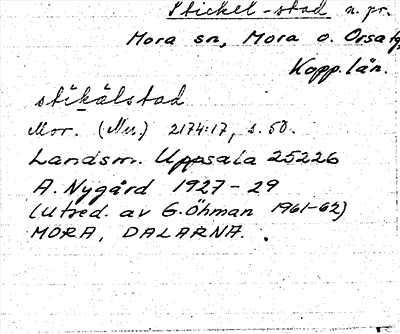 Stickel-stad n. pr.
Mora sn, Mora o. Orsa tg,
Kopp. län.
stikälstad
Mor. (Nus.) 2174:17, s. 50.
Landsm. Uppsala 25226
A. Nygård 1927-29
(utred. av G. Öhman 1961-62)
MORA, DALARNA.